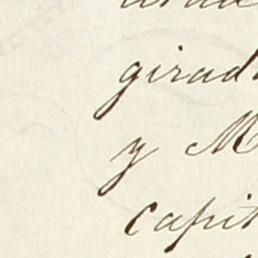 girad
y M
capit